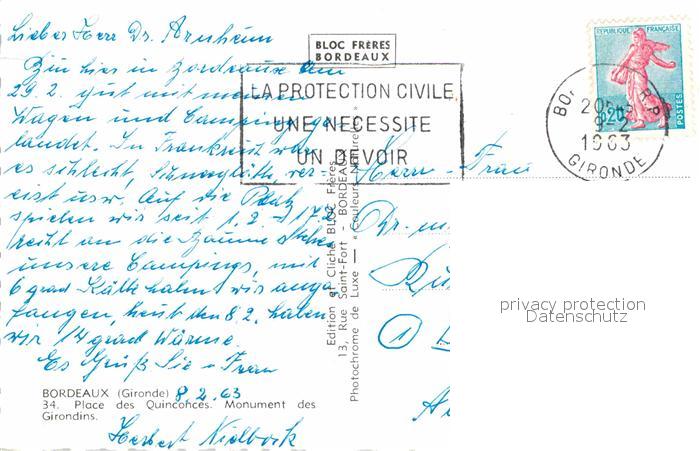 Lieber Herr Dr. Arnheim
Bin hier in Bordeaux am
29.2. gut mit meinen
Wagen und Camping ge
landet. In Frankreich war
es schlecht, Schneeglätte, ver-
eist usw. Auf die Platz
spielen wir seit 1.2. - 17.2.
recht an die Bäume stehen
unsere Campings, mit
6 grad Kälte haben wir ange
fangen, heut den 8.2. haben
wir 14 grad Wärme.
Es Grüß Sie u Frau
BORDEAUX (Gironde) 8.2.63
34. Place des Quinconces. Monument des
Girondins.
Herbert
BLOC FRÈRES
BORDEAUX
LA PROTECTION CIVILE
UNE NECESSITE
UN DEVOIR
Edition et Cliché BLOC Frères
13, Rue Saint-Fort - BORDEAUX
Photochrome de Luxe — « Couleurs Naturelles »
RÉPUBLIQUE FRANÇAISE
0,20
POSTES
BORDEAUX R.P.
9-2
1963
GIRONDE
Herrn - Frau
Dr.
①
privacy protection
Datenschutz